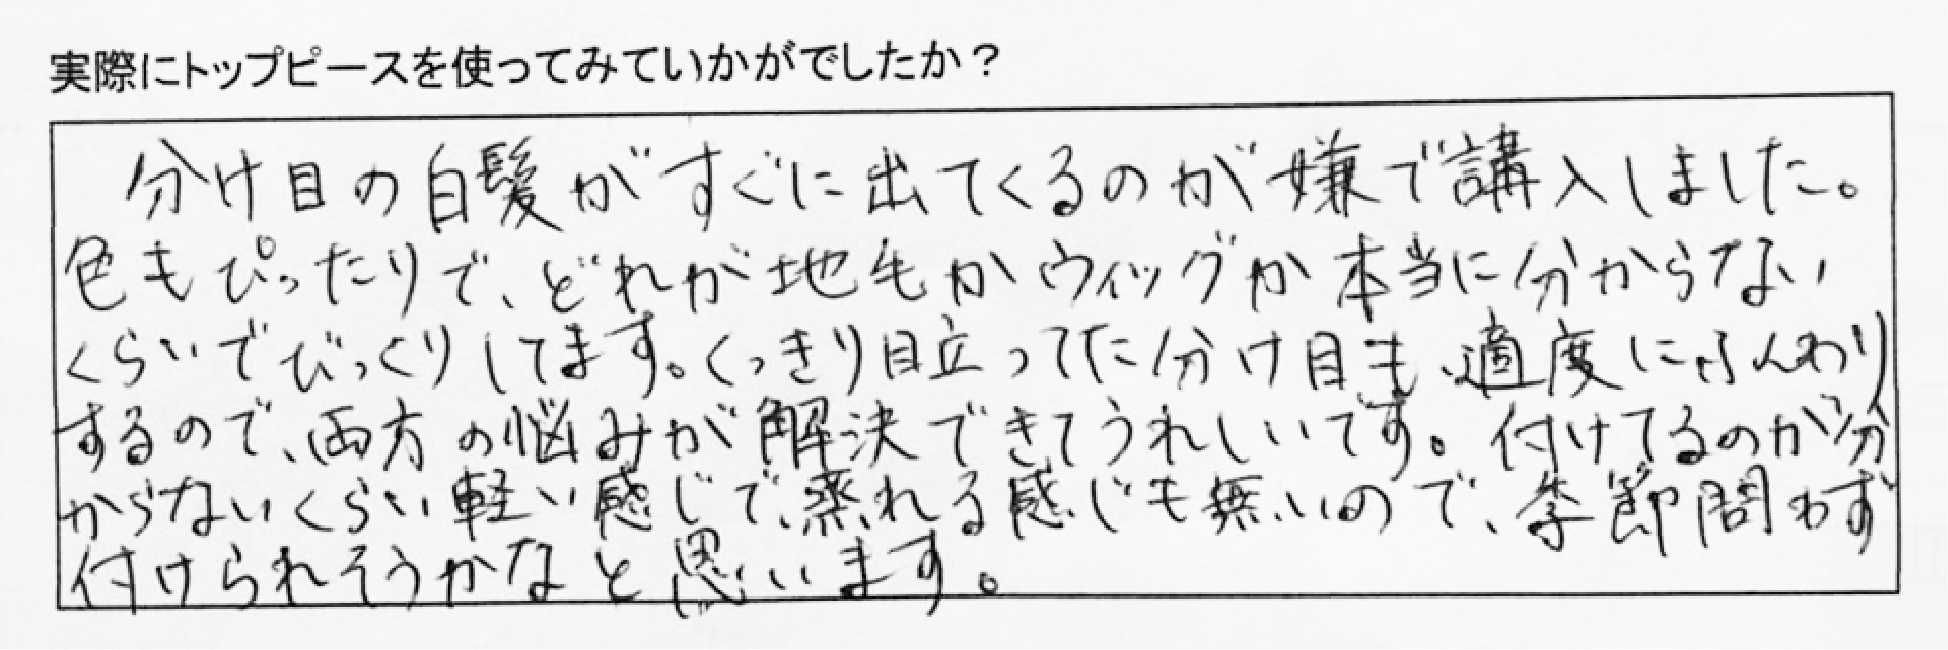 実際にトップピースを使ってみていかがでしたか？
分け目の白髪がすぐに出てくるのが嫌で講入しました。
色もぴったりで、どれが地毛かウィッグか本当に分からない
くらいでびっくりしてます。くっきり目立ってた分け目も、適度にふんわり
するので、両方の悩みが解決できてうれしいです。付けてるのが分
からないくらい軽い感じで、蒸れる感じも無いので、季節問わず
付けられそうかなと思います。